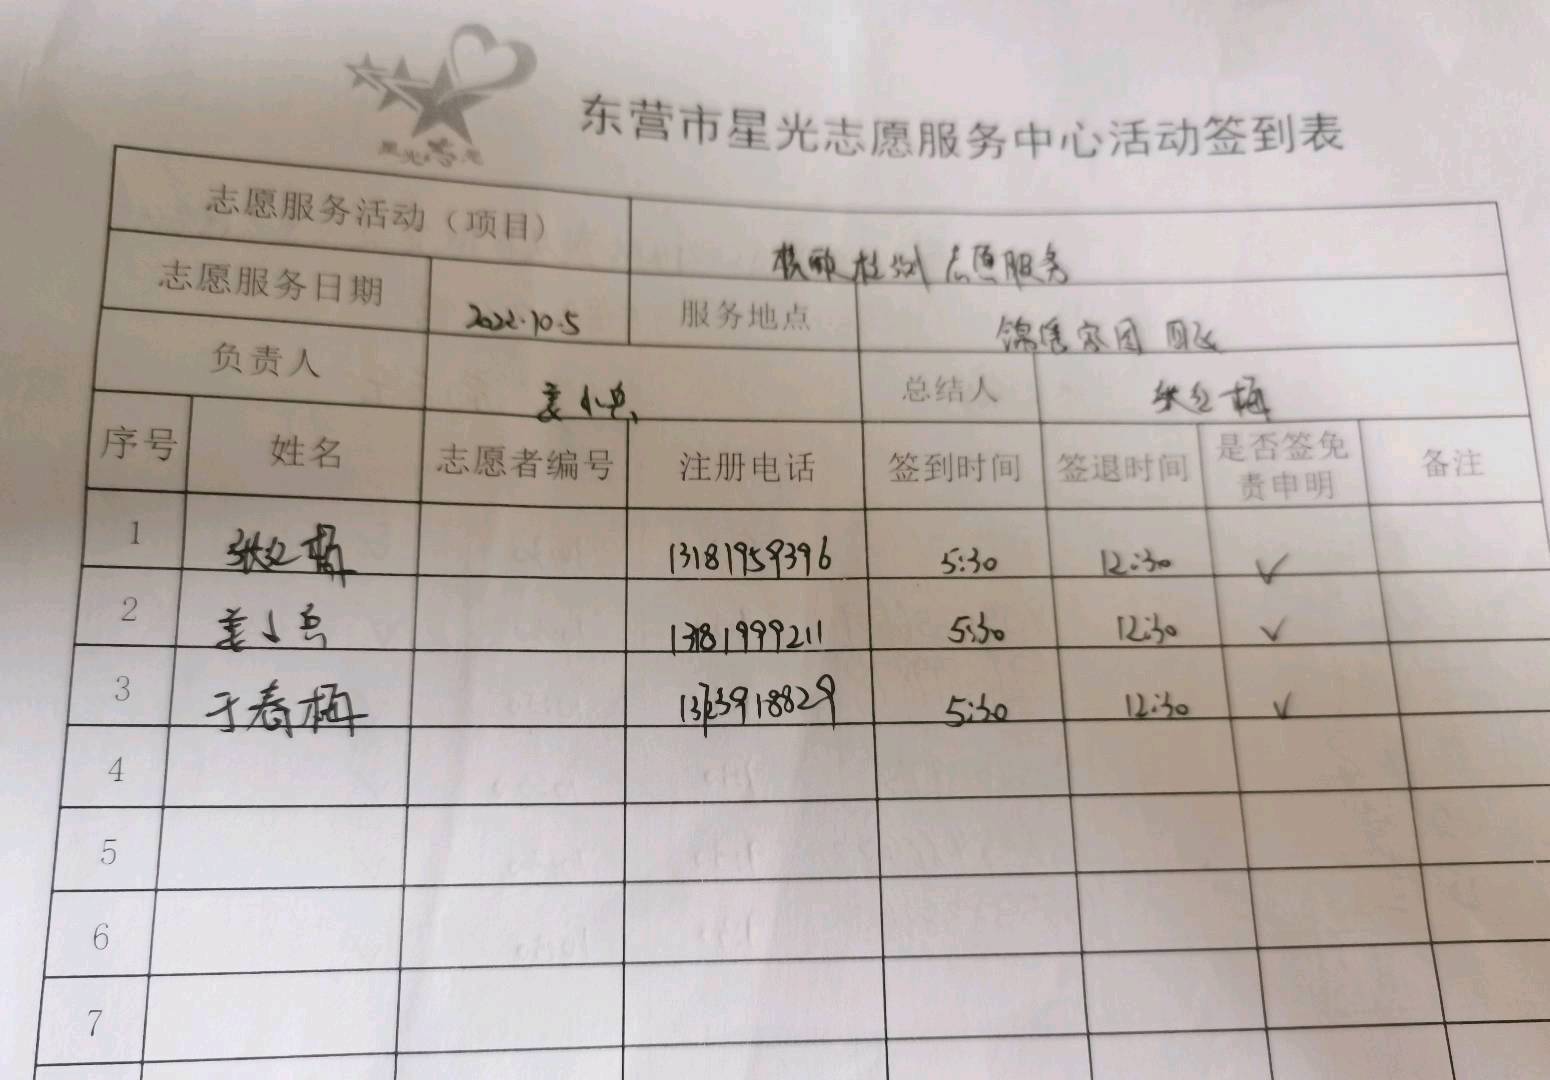 东营市星光志愿服务中心活动签到表
志愿服务活动（项目） 核酸检测志愿服务
志愿服务日期 2022.10.5 服务地点 锦绣家园
负责人 姜小 总结人 张红梅
序号 姓名 志愿者编号 注册电话 签到时间 签退时间 是否签免责申明 备注
1 张红梅 13181959396 5:30 12:30 ✓
2 姜小 13181999211 5:30 12:30 ✓
3 于春梅 5:30 12:30 ✓
4
5
6
7